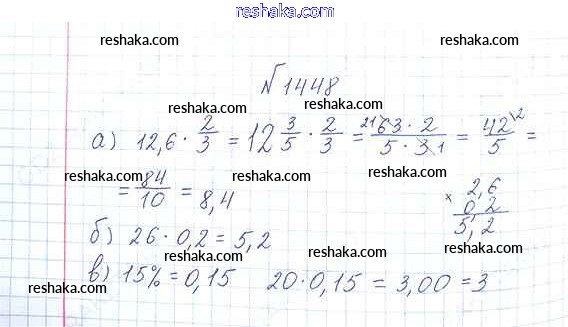 reshaka.com
reshaka.com reshaka.com
№1448
reshaka.com reshaka.com
а) 12,6 · 2/3 = 12 3/5 · 2/3 = 21 63 · 2 / 5 · 3 1 = 42\2 / 5 =
reshaka.com reshaka.com
= 84/10 = 8,4
2,6
× 0,2
5,2
reshaka.com
б) 26 · 0,2 = 5,2
reshaka.com reshaka.com
в) 15% = 0,15 20 · 0,15 = 3,00 = 3
reshaka.com reshaka.com